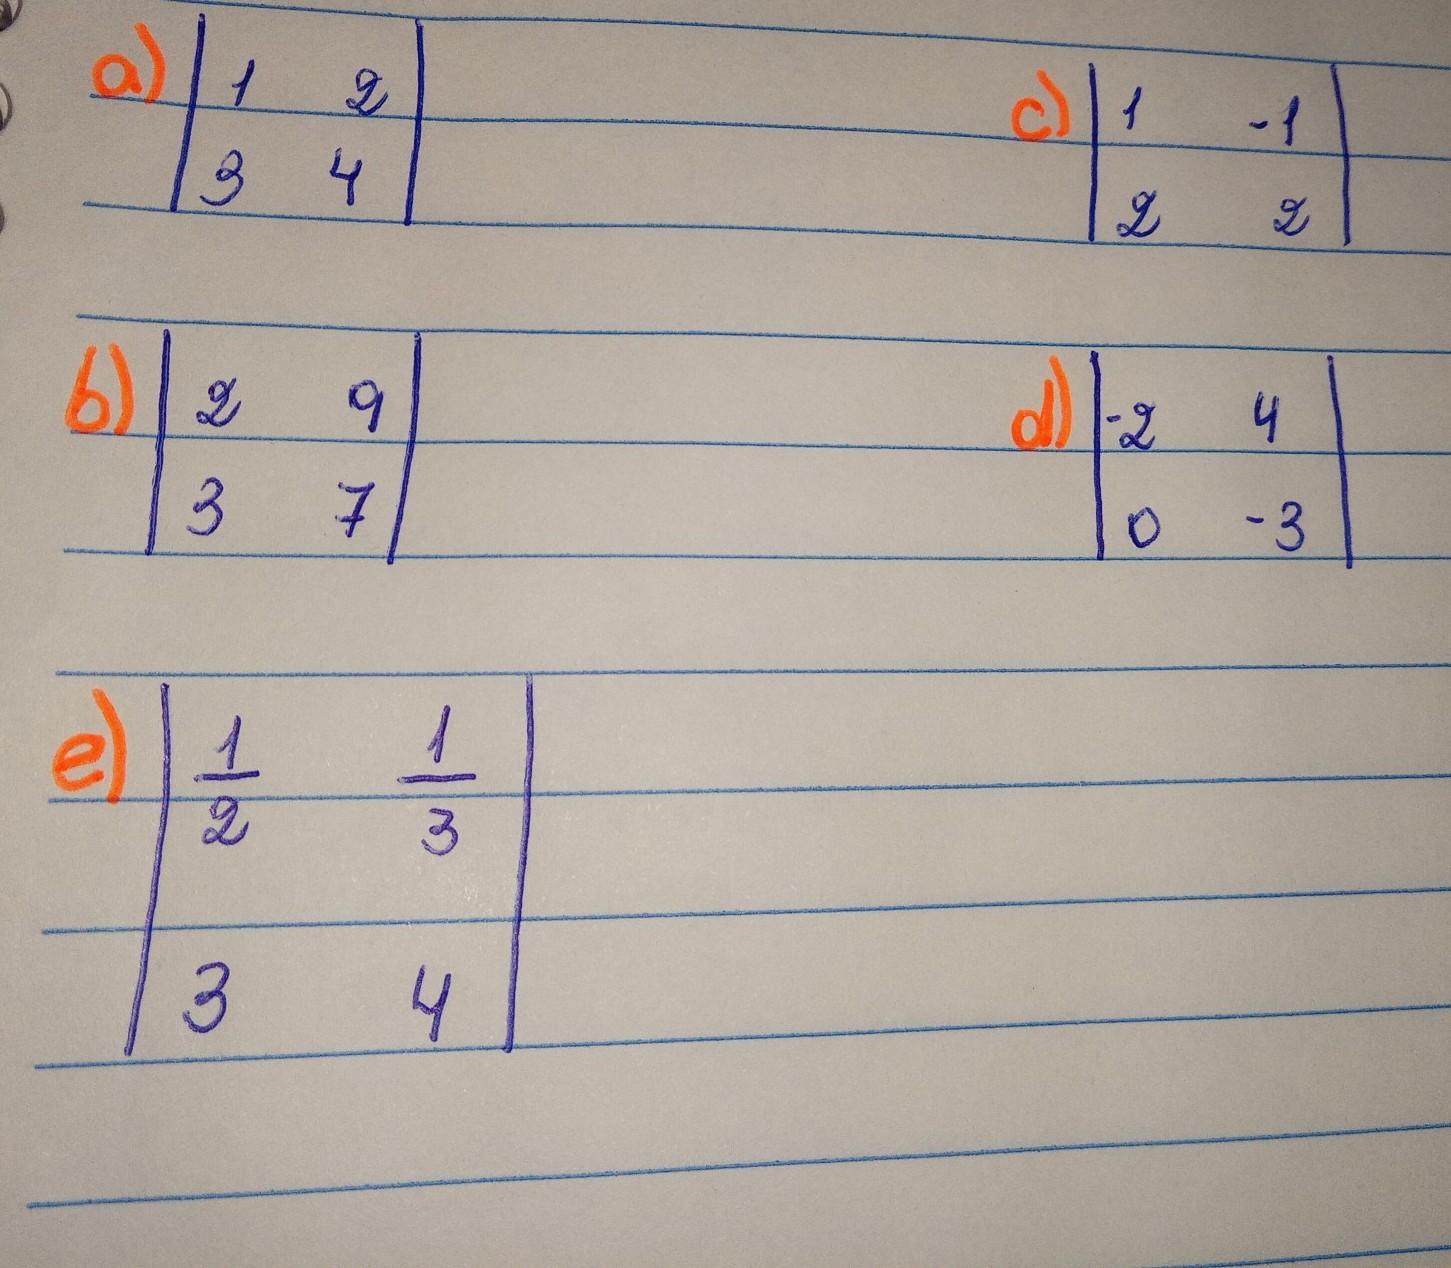 a) | 1 2 |
| 3 4 |
c) | 1 -1 |
| 2 2 |
b) | 2 9 |
| 3 7 |
d) | -2 4 |
| 0 -3 |
e) | 1/2 1/3 |
| 3 4 |